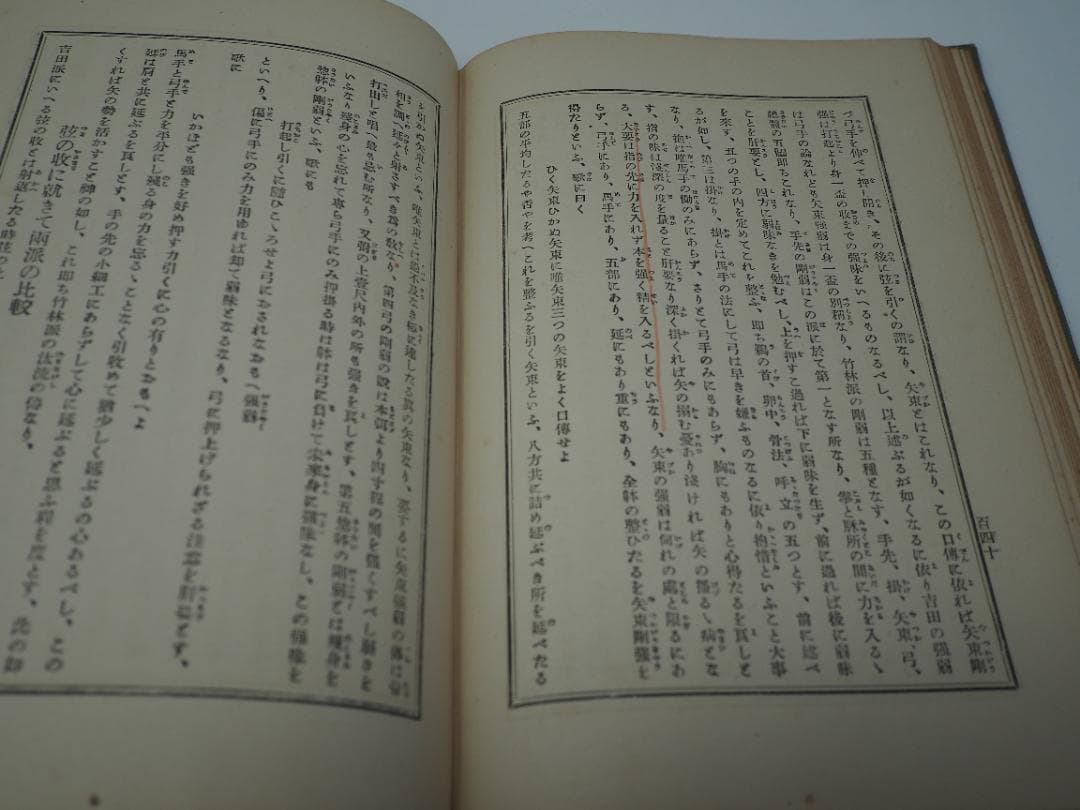 百四十
づ弓手を伸べて押し開き、その後に弦を引くの謂なり、矢束とはこれなり、この口傳に依れば矢束剛
弱は打起より身一盃の收までの强味をいへるものなるべし、以上述ぶるが如くなるに依り吉田の强弱
は弓手の論なれども矢束强弱は身一盃の別稱なり、竹林派の剛弱は五種となす、手先、掛、矢束、弓、
惣體の五個即ちこれなり、手先の剛弱はこの派に於て第一となす所なり、掌と脈所の間に力を入るゝ
ことを肝要とし、四方に弱味なきを勉むべし、上を押すこ過れば下に弱味を生ず、前に過れば後に弱味
を來す、五つの手の内を定めてこれを整ふ、即ち鵜の首、卵中、骨法、呼立の五つとす、前に述べ
るが如し、第三は掛なり、掛とは馬手の法にして弓は早きを嫌ふものなるに依り抱惜といふこと大事
なり、抱は唯馬手の働のみにあらず、さりとて弓手のみにもあらず、胸にもありと心得たるを良しと
す、指の味は淺深の度を量ること肝要なり深く掛くれば矢の搦む憂あり淺ければ矢の搖るゝ病とな
る、大要は指の先に力を入れず本を强く精を入るべしといふなり、矢束の强弱は何れの處と限るにあ
らず、弓手にあり、馬手にあり、五部にあり、延にもあり重にもあり、全體の整ひたるを矢束剛强を
得たりといふ、歌に曰く
ひく矢束ひかぬ矢束に唯矢束三つの矢束をよく口傳せよ
五部の平均したるや否やを考へこれを整ふるを引く矢束といふ、八方共に詰め延ぶべき所を延べたる
を引かぬ矢束といふ、唯矢束とは過不及なき極に達したる眞の矢束なり、要するに矢束强弱の傳は
和を調へ延々と射さすべき爲の敎なり、第四弓の剛弱の說は本弭より四寸程の間を强くすべし弱きを
打出しと唱へ最も忌む所なり、又弭の上壹尺内外の所も强きを良しとす、第五惣體の剛弱とは總身を
いふなり總身の心を忘れて專ら弓手にのみ押掛る時は體は弓に負けて末葉身に强味なし、この强味を
惣體の剛弱といふ、歌にも
打起し引くに隨ひこゝろせよ弓におされなおせ强弱
といへり、偏に弓手にのみ力を用ゆれば却て弱味となるなり、弓に押上げられざる注意を肝要とす、
歌に
いかほども强きを好め押す力引くに心の有りとおもへよ
馬手と弓手と力を平分にし殘る身の力を忘るゝことなく引收めて猶少しく延ぶるの心あるべし、この
延は肩と共に延ぶるを良しとす、手の先の小細工にあらずして心に延ぶると思ふ程を度とす、此の如
くすれば矢の勢を活かすこと神の如し、これ即ち竹林派の法流の傳なり、
弦の收に就きて兩派の比較
吉田派にいへる弦の收とは射返したる時弦の